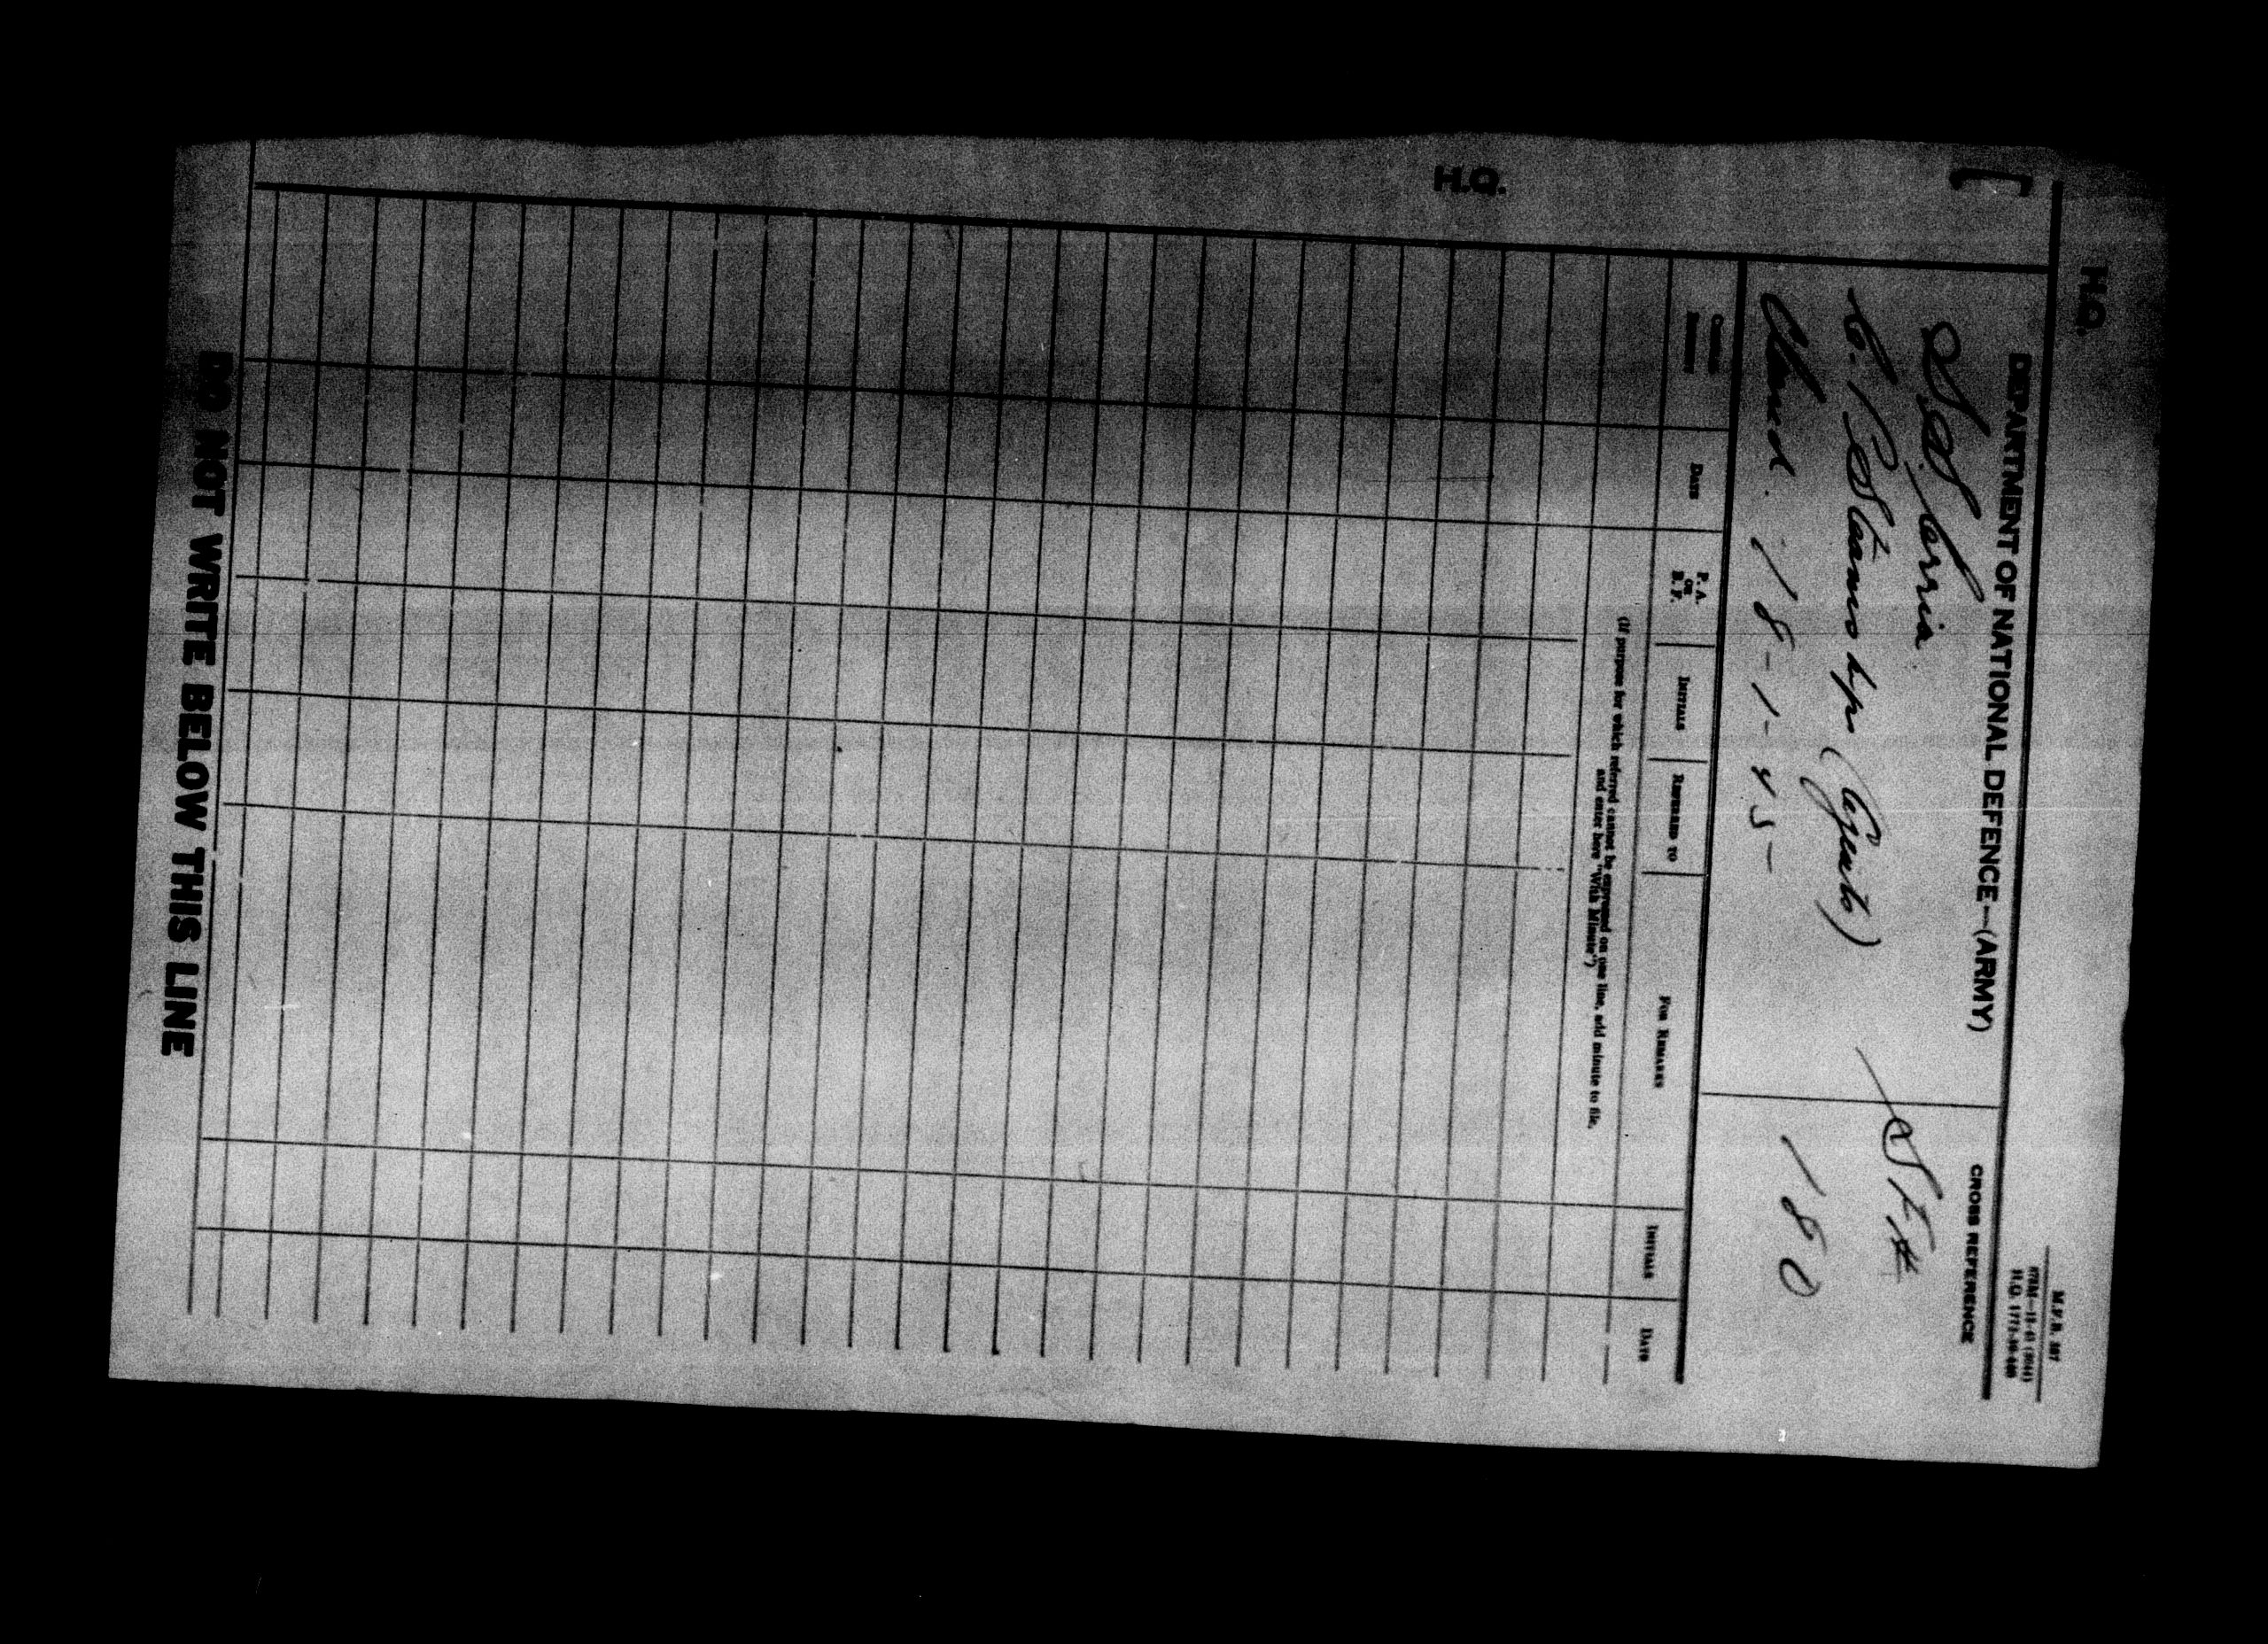 H.Q.
M.F.B. 387
H.Q. 1772-39-
H.Q.
DEPARTMENT OF NATIONAL DEFENCE—(ARMY)
CROSS REFERENCE
C.P. Steamships (Agents)
Closed. 18-1-45-
180
DATE
P.A. OR B.F.
INITIALS
REFERRED TO
FOR REMARKS
INITIALS
DATE
(If purpose for which referred cannot be expressed on one line, add minute to file,
and enter here "With Minute")
DO NOT WRITE BELOW THIS LINE